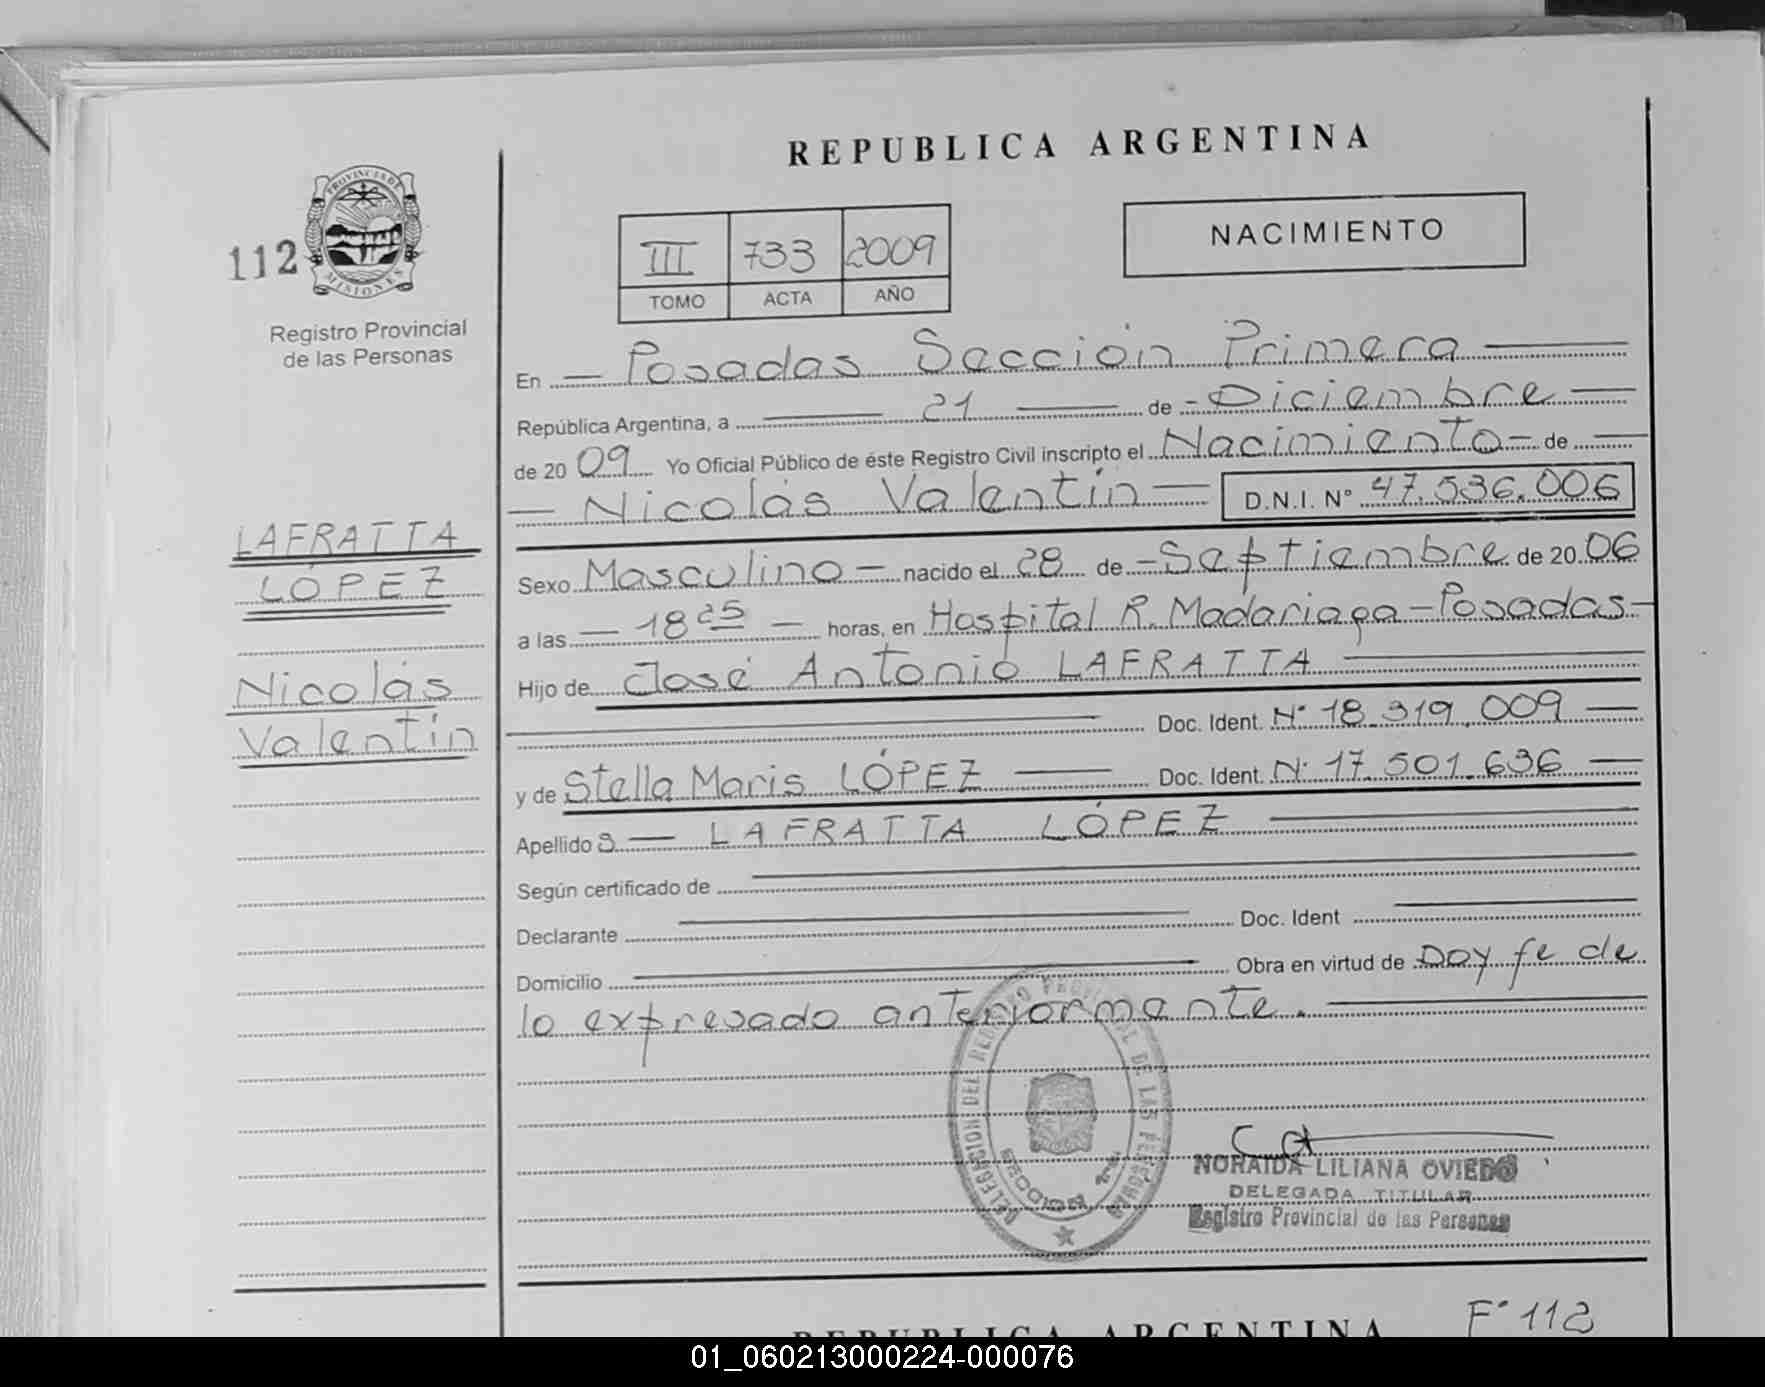 REPUBLICA ARGENTINA
112
PROVINCIA DE
MISIONES
Registro Provincial
de las Personas
NACIMIENTO
III 733 2009
TOMO ACTA AÑO
En — Posadas Sección Primera —
República Argentina, a — 21 — de - Diciembre —
de 20 09 Yo Oficial Público de éste Registro Civil inscripto el Nacimiento - de —
— Nicolás Valentín — D.N.I. N° 47.536.006
LAFRATTA
LÓPEZ
Nicolás
Valentín
Sexo Masculino — nacido el 28 de - Septiembre de 20 06
a las — 18 25 — horas, en Hospital R. Madariaga - Posadas -
Hijo de José Antonio LAFRATTA —
— Doc. Ident. N° 18.319.009 —
y de Stella Maris LÓPEZ — Doc. Ident. N° 17.501.636 —
Apellido s — LAFRATTA LÓPEZ —
Según certificado de —
Declarante — Doc. Ident —
Domicilio — Obra en virtud de Doy fe de
lo expresado anteriormente. —
DELEGACION DEL REGISTRO PROVINCIAL DE LAS PERSONAS
SECCION 1ra.
NORAIDA LILIANA OVIEDO
DELEGADA TITULAR
Registro Provincial de las Personas
F° 112
REPUBLICA ARGENTINA
01_060213000224-000076